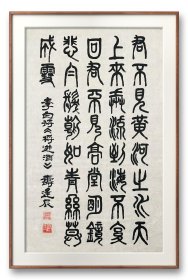 君不見黃河之水天
上來奔流到海不復
回君不見高堂明鏡
悲白髮朝如青絲暮
成雪
李白诗《将进酒》